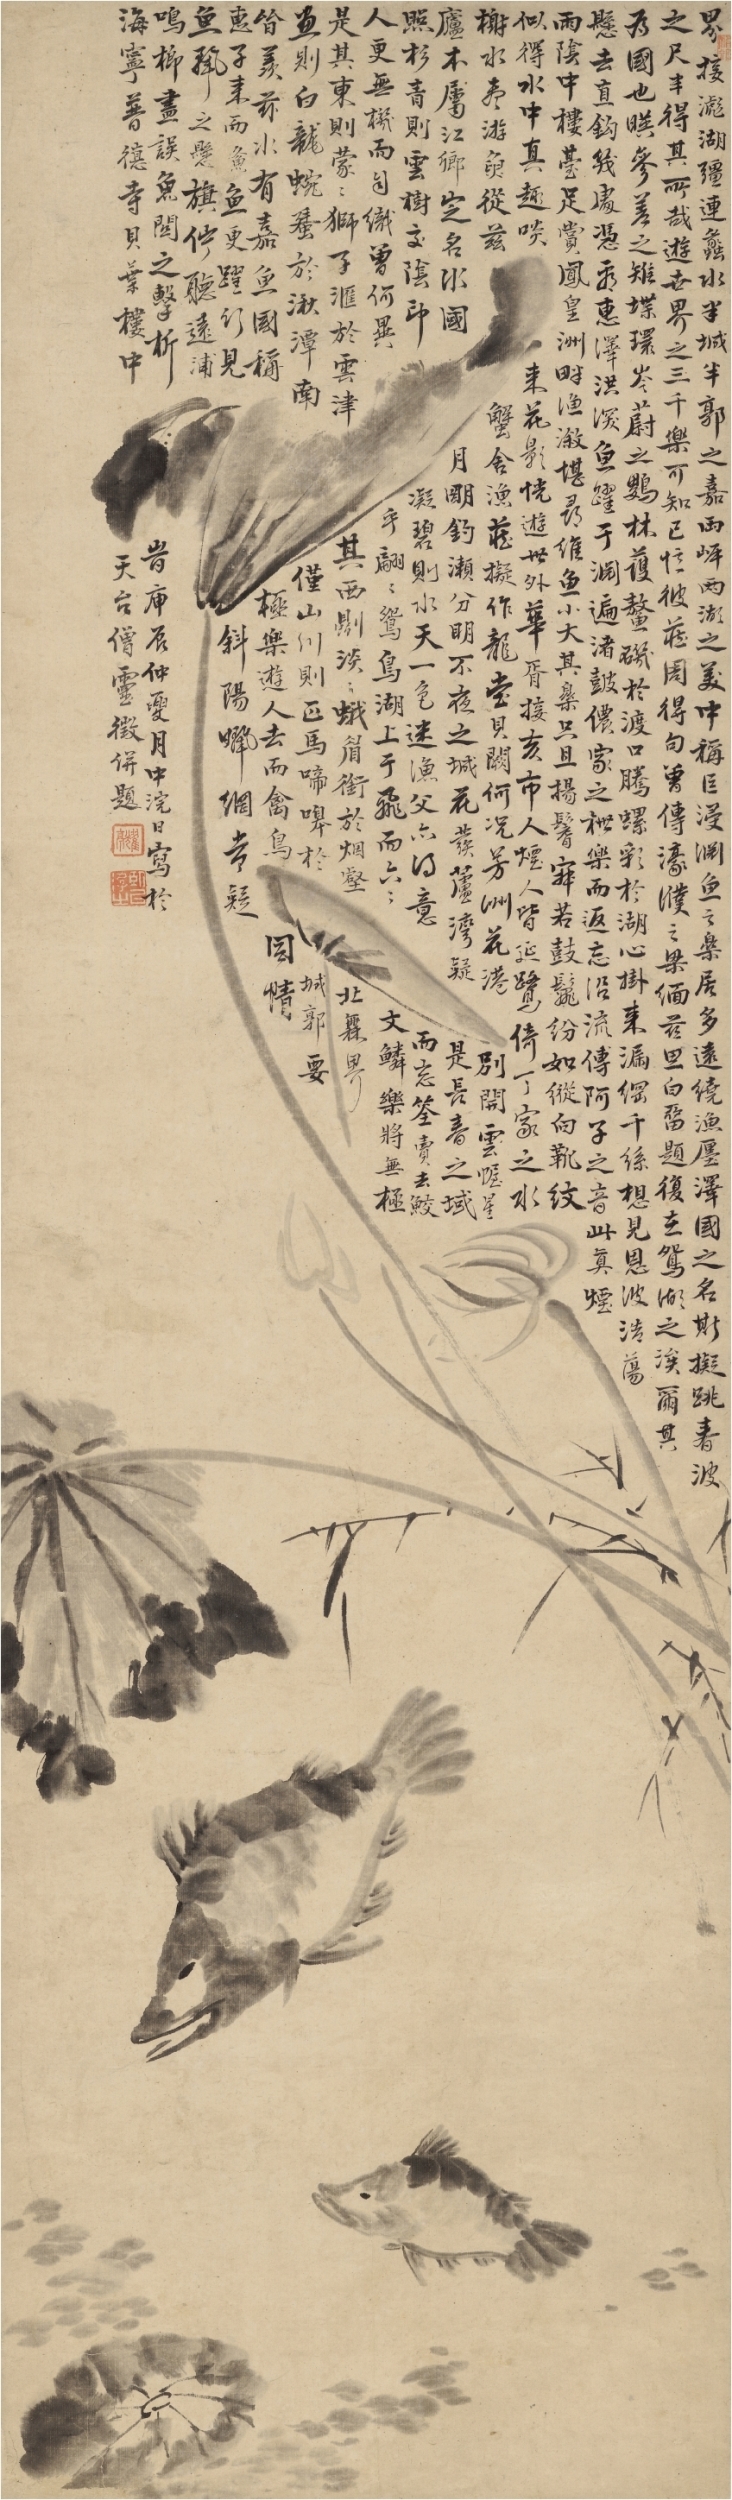 界接瀛湖疆連蠡水半城半郭之嘉雨岸兩湖之美中稱巨浸淵魚之樂居多遠繞漁鄽澤國之名斯擬跳春波
之尺半得其所哉遊世界之三千樂可知已恍彼莊周得句曾傳濠濮之梁緬茲思白留題復在鴛湖之涘爾其
為國也睽參差之雉堞環岑蔚之鸚林護鰲磯於渡口騰螺彩於湖心掛來漏網千絲想見恩波浩蕩
懸去直鉤幾處憑看惠澤洪深魚躍于淵遍渚鼓儂家之枻樂而返忘沿流傳阿子之音此真煙
雨陰中樓臺足賞鳳皇洲畔漁潊堪尋維魚小大其樂只且揚鬐寐若鼓鬣紛如縱向靴紋
似得水中真趣唼來花影恍遊世外華胥接亥市人煙人皆延鷺倚丁家之水
榭水壺游魚從茲蟹舍漁莊擬作龍堂貝闕何況芳洲花港別開雲幄星
廬本屬江鄉定名水國月明釣瀨分明不夜之城花發蘆灣疑是長春之域
照杉青則雲樹交陰印凝碧則水天一色迷漁父亦得意而忘筌賣去鮫
人更無機而自織曾何異乎翩翩鴛鳥湖上于飛而六六文鱗樂將無極
是其東則蒙蒙獅子滙於雲津其西則淡淡蛾眉銜於烟壑北霖界
畫則白龍蜿蜒於湫潭南僅山川則匹馬啼嗥於城郭要
皆羨茲水有嘉魚國稱極樂遊人去而禽鳥同情
惠子來而魚魚更躍行見斜陽曬網常疑
魚飛之縣旗停聽遠浦
鳴榔盡誤魚關之擊柝
旹庚辰仲夏月中浣日寫於
海寧普德寺貝葉樓中
天台僧靈徹併題